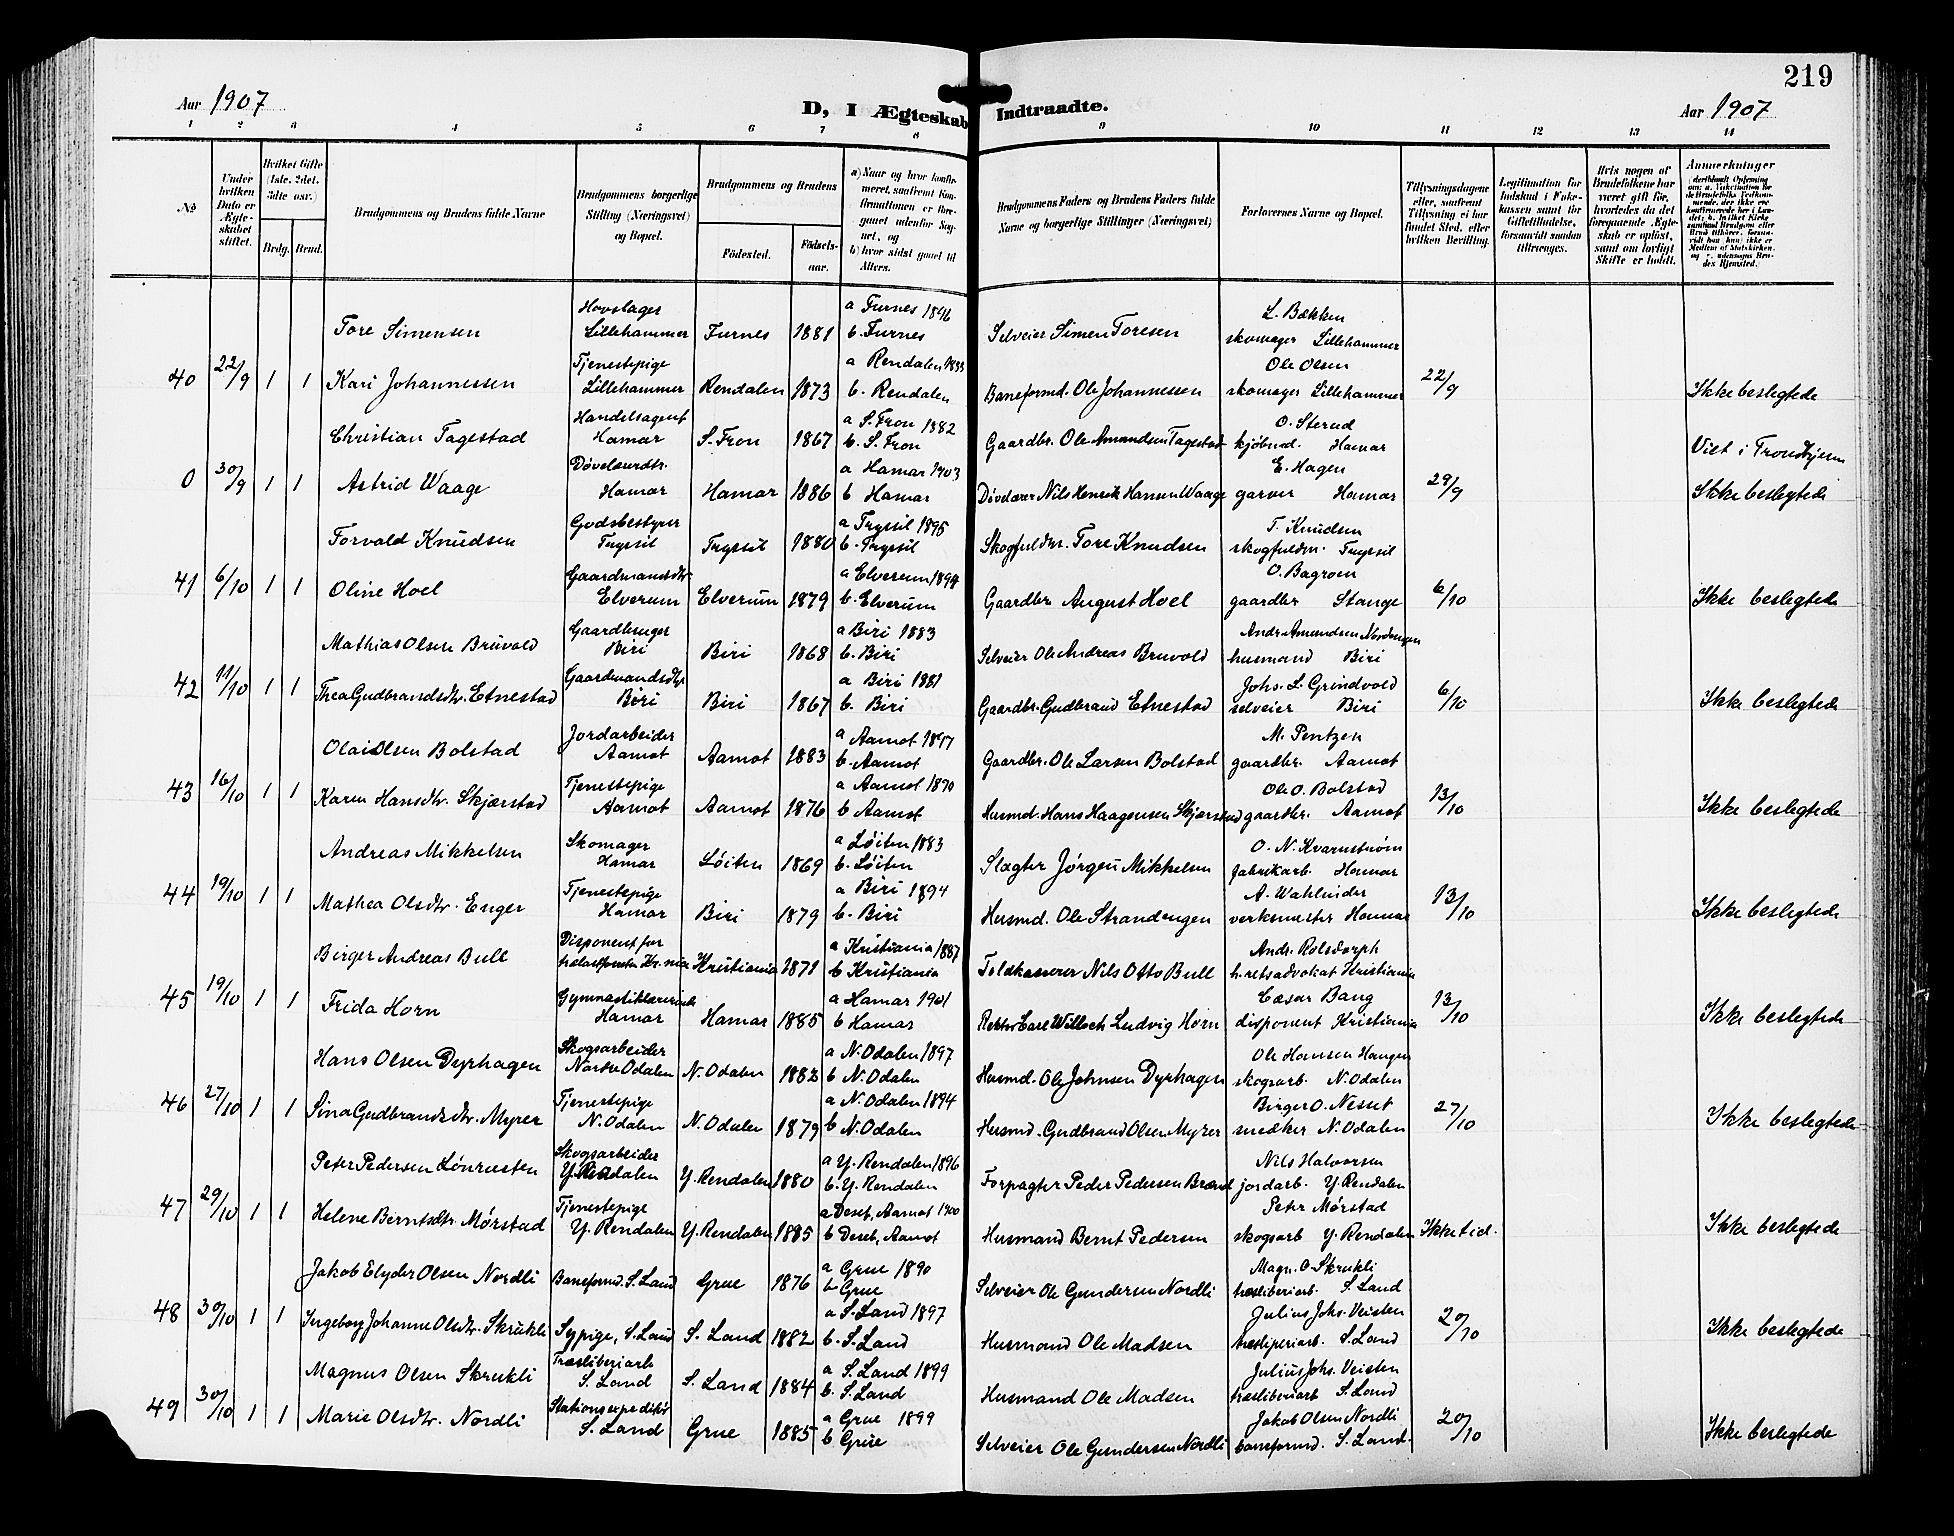 219
Aar 1907
D, I Ægteskab Indtraadte.
Aar 1907
1 2 3 4 5 6 7 8 9 10 11 12 13 14
No
Under hvilken Dato er Ægteskabet stiftet.
Hvilket Gifte (1ste, 2det, 3die osv.)
Brdg. Brud.
Brudgommens og Brudens fulde Navne
Brudgommens borgerlige Stilling (Næringsvei) og Bopæl.
Brudgommens og Brudens
Fødested.
Fødsels-aar.
a) Naar og hvor konfirmeret, saafremt Konfirmationen er foregaaet udenfor Sognet, og
b) hvor sidst gaaet til Alters.
Brudgommens Faders og Brudens Faders fulde Navne og borgerlige Stillinger (Næringsvei)
Forlovernes Navne og Bopæl.
Tillysningsdagene eller, saafremt Tillysning ei har fundet Sted, efter hvilken Bevilling.
Legitimation for Indskud i Enkekassen samt for Giftetilladelse, forsaavidt saadan tiltrænges.
Hvis nogen af Brudefolkene har været gift før, hvorledes da det foregaaende Ægteskab er opløst, samt om lovligt Skifte er holdt.
Anmærkninger
Tore Simensen Hovslager Lillehammer Furnes 1881 a Furnes 1896 b. Furnes Selveier Simen Toresen L. Bækken skomager Lillehammer
40 22/9 1 1 Kari Johannessen Tjenestepige Lillehammer Rendalen 1873 a Rendalen b. Rendalen Baneformd. Ole Johannessen Ole Olsen skomager Lillehammer 22/9 Ikke beslegtede
Christian Tagestad Handelsagent Hamar S. Fron 1867 a S. Fron 1882 b. S. Fron Gaardbr. Ole Amundsen Tagestad O. Sterud kjøbmd. Hamar Viet i Trondhjem
0 30/9 1 1 Astrid Waage Døvelærerdtr. Hamar Hamar 1886 a Hamar 1903 b Hamar Døvelærer Nils Henrik Hansen Waage E. Hagen garver Hamar 29/9 Ikke beslegtede
Torvald Knudsen Godsbestyrer Trysil Trysil 1880 a Trysil 1895 b. Trysil Skogfuldm. Tore Knudsen T. Knudsen skogfuldm. Trysil
41 6/10 1 1 Oline Hoel Gaardmandsdtr. Elverum Elverum 1879 a Elverum 1894 b. Elverum Gaardbr August Hoel O. Bagroen gaardbr Stange 6/10 Ikke beslegtede
Mathias Olsen Bruvold Gaardbruger Biri Biri 1868 a Biri 1883 b. Biri Selveier Ole Andreas Bruvold Andr. Amundsen Nordengen husmand Biri
42 11/10 1 1 Thea Gudbrandsdtr. Etnestad Gaardmandsdtr Biri Biri 1867 a Biri 1881 b. Biri Gaardbr. Gudbrand Etnestad Johs. L. Grindvold selveier Biri 6/10 Ikke beslegtede
Olai Olsen Bolstad Jordarbeider Aamot Aamot 1883 a Aamot 1897 b. Aamot Gaardbr. Ole Larsen Bolstad M. Pentzen gaardbr. Aamot
43 16/10 1 1 Karen Hansdtr. Skjærstad Tjenestepige Aamot Aamot 1876 a Aamot 1890 b Aamot Husmd. Hans Haagensen Skjærstad Ole O. Bolstad gaardbr. Aamot 13/10 Ikke beslegtede
Andreas Mikkelsen Skomager Hamar Løiten 1869 a Løiten 1883 b. Løiten Slagter Jørgen Mikkelsen O. N. Kvarnstrøm fabrikarb. Hamar
44 19/10 1 1 Mathea Olsdtr. Enger Tjenestepige Hamar Biri 1879 a Biri 1894 b. Biri Husmd. Ole Strandengen A. Wahlinder verksmester Hamar 13/10 Ikke beslegtede
Birger Andreas Bull Disponent for Kristiania 1871 a Kristiania 1887 b Kristiania Toldkasserer Nils Otto Bull Andr. Rolsdorph h.retsadvokat Kristiania
45 19/10 1 1 Frida Horn Gymnastiklærerinde Hamar Hamar 1885 a Hamar 1901 b Hamar Rektor Carl Willoch Ludvig Horn Cæsar Bang disponent Kristiania 13/10 Ikke beslegtede
Hans Olsen Dyrhagen Skogsarbeider Norske Odalen N. Odalen 1882 a N. Odalen 1897 b N. Odalen Husmd. Ole Johnsen Dyrhagen Ole Hansen Haugen skogsarb. N. Odalen
46 27/10 1 1 Sina Gudbrandsdtr. Myrer Tjenestepige N. Odalen N. Odalen 1879 a N. Odalen 1894 b N. Odalen Husmd. Gudbrand Olsen Myrer Birger O. Nesset snedker N. Odalen 27/10 Ikke beslegtede
Peter Pedersen Lønræsten Skogsarbeider Y. Rendalen Y. Rendalen 1880 a Y. Rendalen 1896 b. Y. Rendalen Forpagter Peder Pedersen Brænd Nils Halvorsen jordarb. Y. Rendalen
47 29/10 1 1 Helene Berntsdtr. Mørstad Tjenestepige Y. Rendalen Y. Rendalen 1885 a Deset, Aamot 1900 b Deset, Aamot Husmand Bernt Pedersen Peter Mørstad skogsarb Y. Rendalen Ikke tid. Ikke beslegtede
Jakob Elyder Olsen Nordli Baneformd. S. Land Grue 1876 a Grue 1890 b Grue Selveier Ole Gundersen Nordli Magn. O. Skrukli træsliberiarb. S. Land
48 30/10 1 1 Ingeborg Johanne Olsdtr. Skrukli Sypige, S. Land S. Land 1882 a S. Land 1897 b. S. Land Husmand Ole Madsen Julius Johs. Veisten træsliperiarb. S. Land 20/10 Ikke beslegtede
Magnus Olsen Skrukli Træsliberiarb S. Land S. Land 1884 a S. Land 1899 b. S. Land Husmand Ole Madsen Julius Johs. Veisten træsliberiarb S. Land
49 30/10 1 1 Marie Olsdtr. Nordli Stationsexpeditør S. Land Grue 1885 a Grue 1899 b Grue Selveier Ole Gundersen Nordli Jakob Olsen Nordli baneformd. S. Land. 20/10 Ikke beslegtede